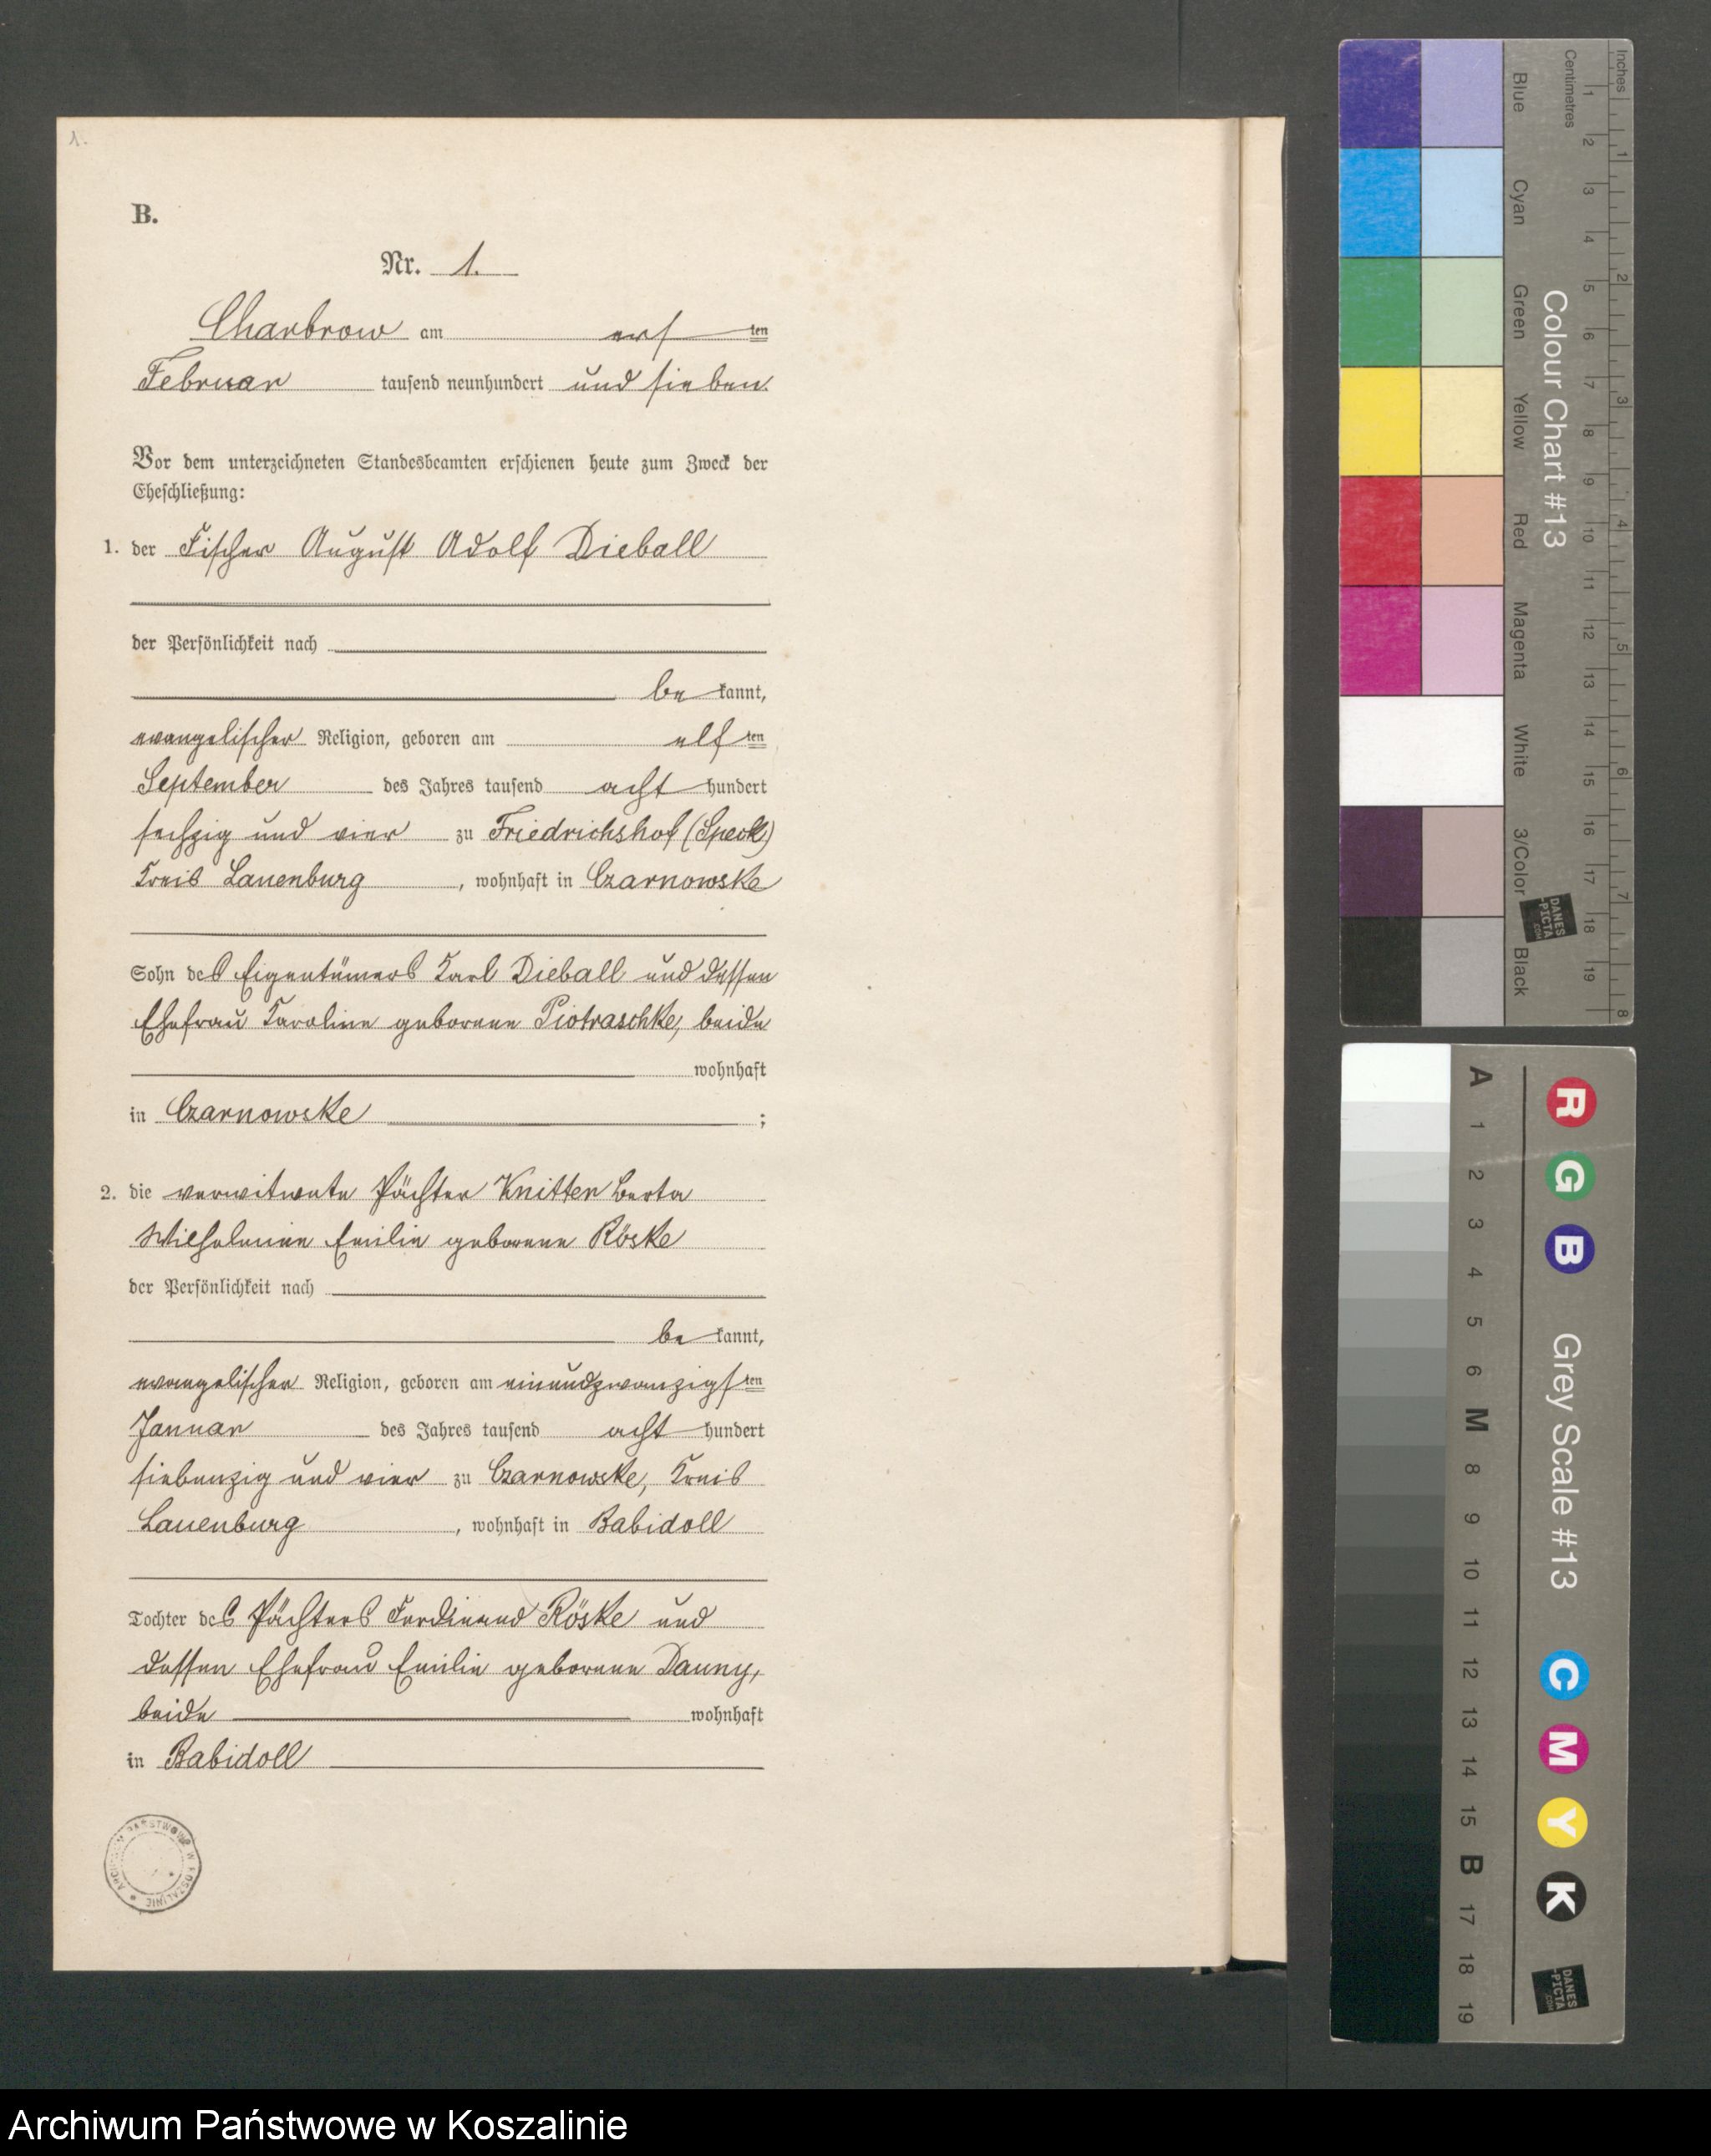 1.
B.
Nr. 1.
Charbrow am ersten
Februar tausend neunhundert und sieben.
Vor dem unterzeichneten Standesbeamten erschienen heute zum Zweck der
Eheschließung:
1. der Fischer August Adolf Dieball
der Persönlichkeit nach
bekannt,
evangelischer Religion, geboren am elften
September des Jahres tausend acht hundert
sechzig und vier zu Friedrichshof (Speck)
Kreis Lauenburg, wohnhaft in Czarnowske
Sohn des Eigentümers Karl Dieball und dessen
Ehefrau Karoline geborene Piotraschke, beide
wohnhaft
in Czarnowske;
2. die verwitwete Pächter Knitter Berta
Wilhelmine Emilie geborene Röske
der Persönlichkeit nach
bekannt,
evangelischer Religion, geboren am einundzwanzigsten
Januar des Jahres tausend acht hundert
siebenzig und vier zu Czarnowske, Kreis
Lauenburg, wohnhaft in Babidoll
Tochter des Pächters Ferdinand Röske und
dessen Ehefrau Emilie geborene Danny,
beide wohnhaft
in Babidoll
ARCHIWUM PAŃSTWOWE W KOSZALINIE
Inches 1 2 3 4 5 6 7 8
Centimetres 1 2 3 4 5 6 7 8 9 10 11 12 13 14 15 16 17 18 19
Colour Chart #13
Blue Cyan Green Yellow Red Magenta White 3/Color Black
DANES
-PICTA
.COM
A 1 2 3 4 5 6 M 8 9 10 11 12 13 14 15 B 17 18 19
R G B Grey Scale #13 C M Y K
DANES
-PICTA
.COM
Archiwum Państwowe w Koszalinie